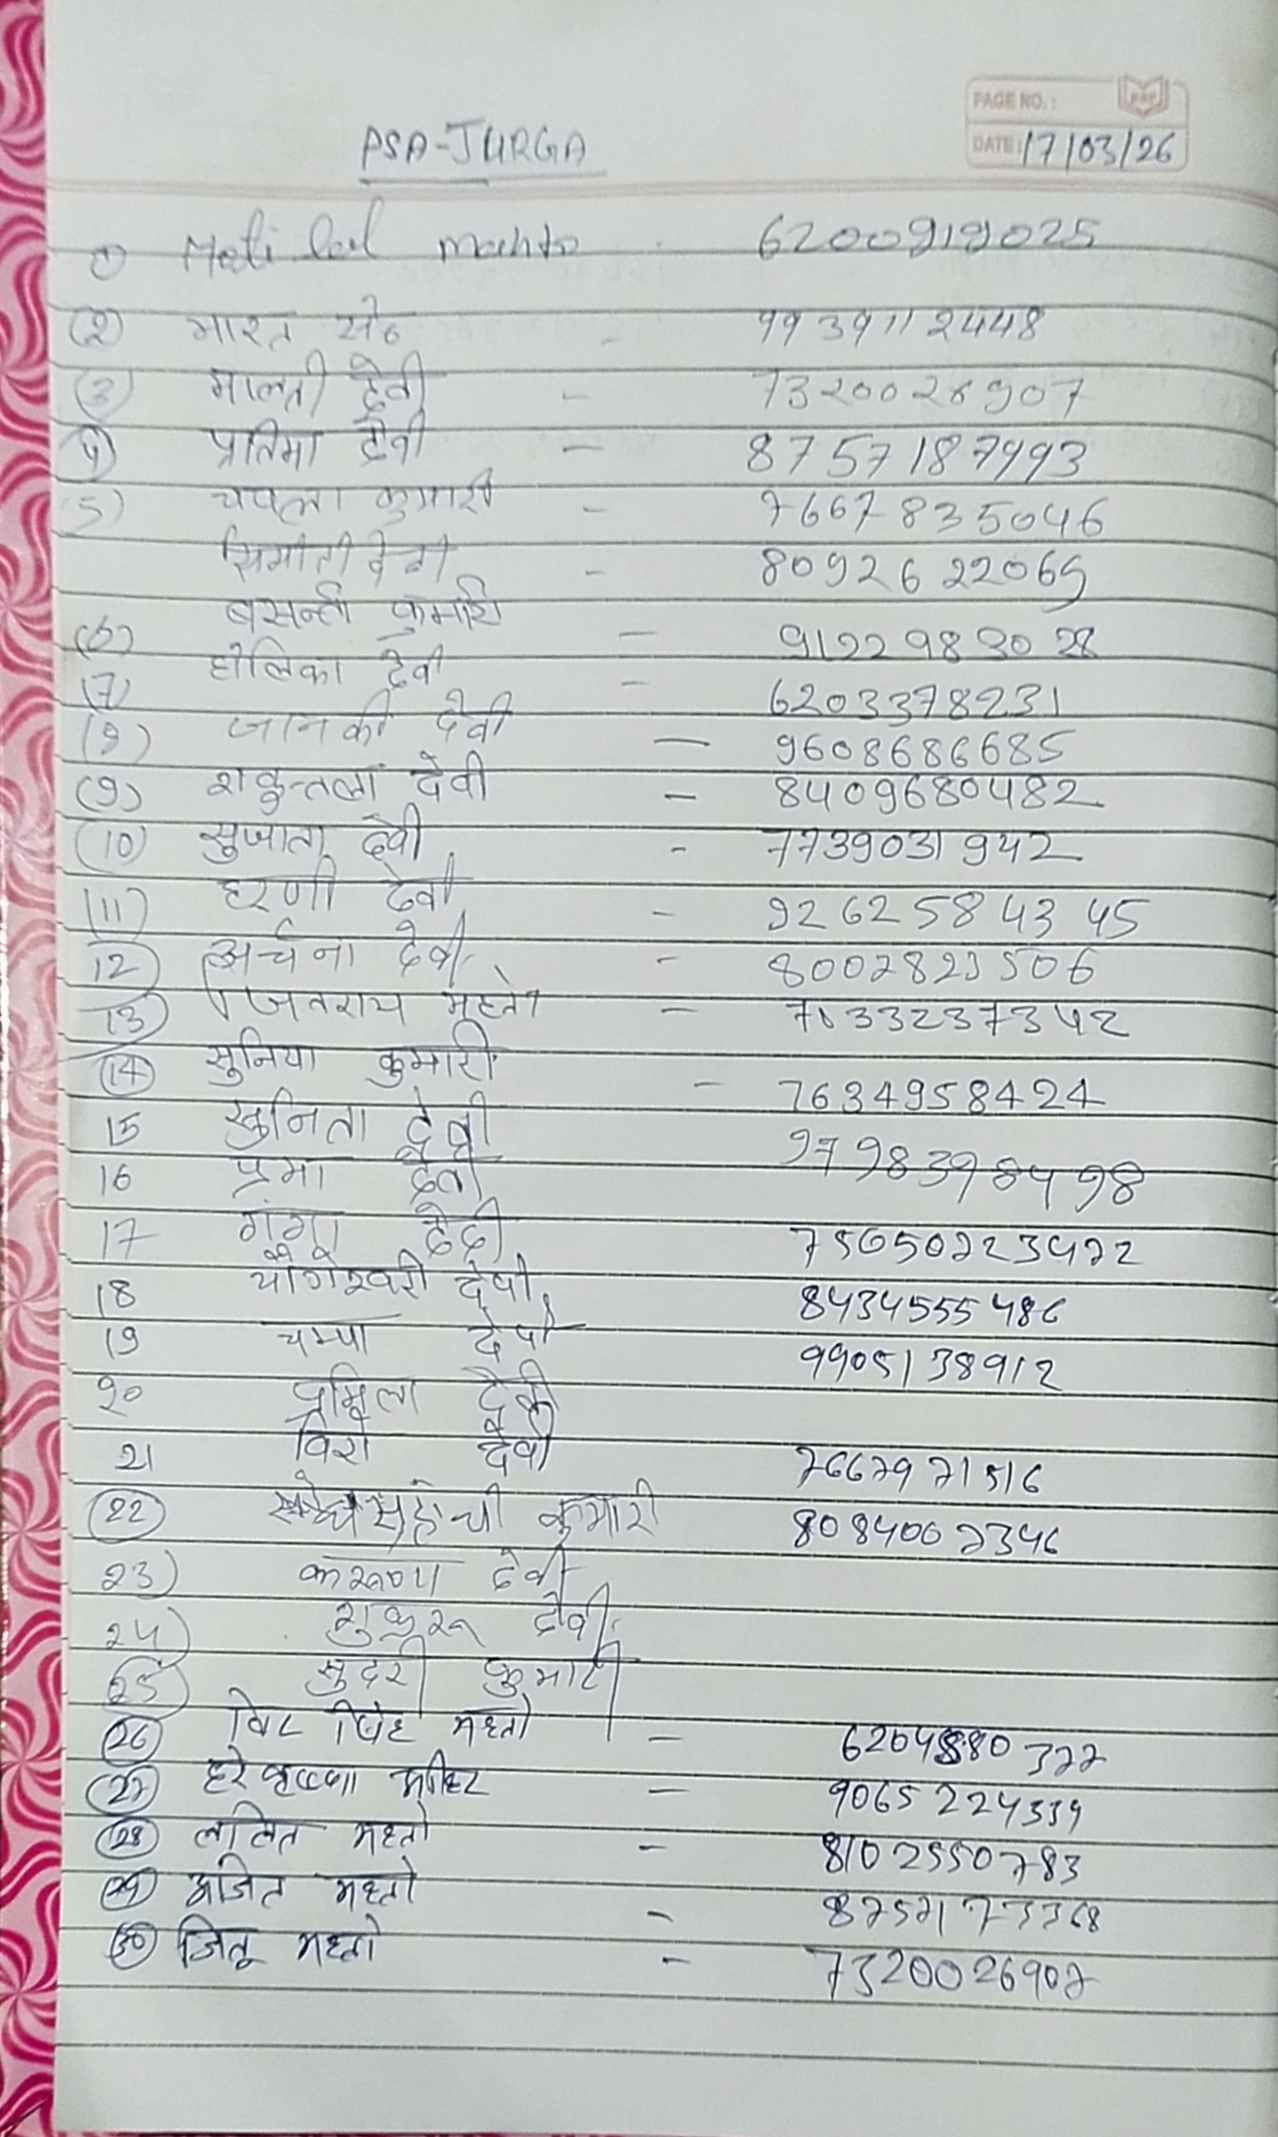 PAGE NO.:
DATE: 17/03/26
PSA-JURGA
1) Moti lal mahto 6200919025
(2) भारत सेठ - 9939112448
(3) मालती देवी - 7320026907
4) प्रतिमा देवी - 8757187993
5) चपला कुमारी - 7667835046
देवी - 8092622069
(6) बसन्ती कुमारी - 9122983028
(7) होलिका देवी - 6203378231
(8) जानकी देवी - 9608686685
(9) शकुन्तला देवी - 8409680482
(10) सुजाता देवी - 7739031942
(11) हरणी देवी - 9262584345
12) अर्चना देवी - 8002823506
13) महतो -
(14) सुनिया कुमारी - 7634958424
15 सुनिता देवी 9798398498
16 प्रभा देवी
17 गंगा देवी 75050223422
18 योगेश्वरी देवी 8434555486
19 चम्पा देवी 9905138912
20 प्रमिला देवी
21 विरो देवी 7667971516
(22) कुमारी 8084002346
23) करूणा देवी
24) शुकरू देवी
25) सुदरी कुमारी
(26) महतो -
(27) हरे कृष्णा - 9065224339
(28) ललित महतो - 8102550783
(29) अजित महतो -
(30) जितू महतो - 7320026907